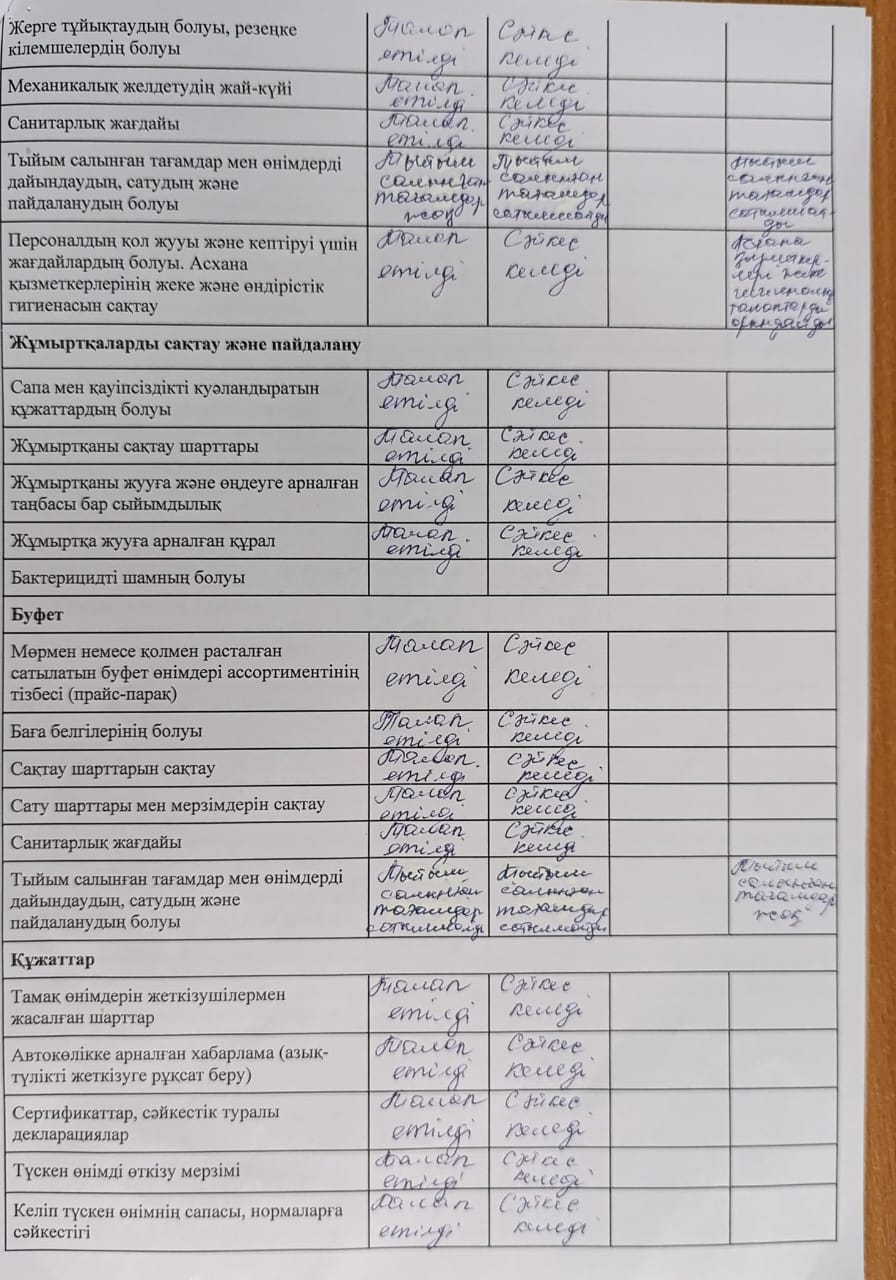 Жерге тұйықтаудың болуы, резеңке
кілемшелердің болуы
Талап
етілді
Сәйкес
келеді
Механикалық желдетудің жай-күйі
Талап
етілді
Сәйкес
келеді
Санитарлық жағдайы
Талап
етілді
Сәйкес
келеді
Тыйым салынған тағамдар мен өнімдерді
дайындаудың, сатудың және
пайдаланудың болуы
Тыйым
салынған
тағамдар
жоқ
Тыйым
салынған
тағамдар
сатылмайды
Тыйым
салынған
тағамдар
сатылмай-
ды
Персоналдың қол жууы және кептіруі үшін
жағдайлардың болуы. Асхана
қызметкерлерінің жеке және өндірістік
гигиенасын сақтау
Талап
етілді
Сәйкес
келеді
Асхана
қызметкер-
лері жеке
гигиеналық
талаптарды
орындайды
Жұмыртқаларды сақтау және пайдалану
Сапа мен қауіпсіздікті куәландыратын
құжаттардың болуы
Талап
етілді
Сәйкес
келеді
Жұмыртқаны сақтау шарттары
Талап
етілді
Сәйкес
келеді
Жұмыртқаны жууға және өңдеуге арналған
таңбасы бар сыйымдылық
Талап
етілді
Сәйкес
келеді
Жұмыртқа жууға арналған құрал
Талап
етілді
Сәйкес
келеді
Бактерицидті шамның болуы
Буфет
Мөрмен немесе қолмен расталған
сатылатын буфет өнімдері ассортиментінің
тізбесі (прайс-парақ)
Талап
етілді
Сәйкес
келеді
Баға белгілерінің болуы
Талап
етілді
Сәйкес
келеді
Сақтау шарттарын сақтау
Талап
етілді
Сәйкес
келеді
Сату шарттары мен мерзімдерін сақтау
Талап
етілді
Сәйкес
келеді
Санитарлық жағдайы
Талап
етілді
Сәйкес
келеді
Тыйым салынған тағамдар мен өнімдерді
дайындаудың, сатудың және
пайдаланудың болуы
Тыйым
салынған
тағамдар
сатылмайды
Тыйым
салынған
тағамдар
сатылмайды
Тыйым
салынған
тағамдар
жоқ
Құжаттар
Тамақ өнімдерін жеткізушілермен
жасалған шарттар
Талап
етілді
Сәйкес
келеді
Автокөлікке арналған хабарлама (азық-
түлікті жеткізуге рұқсат беру)
Талап
етілді
Сәйкес
келеді
Сертификаттар, сәйкестік туралы
декларациялар
Талап
етілді
Сәйкес
келеді
Түскен өнімді өткізу мерзімі
Талап
етілді
Сәйкес
келеді
Келіп түскен өнімнің сапасы, нормаларға
сәйкестігі
Талап
етілді
Сәйкес
келеді